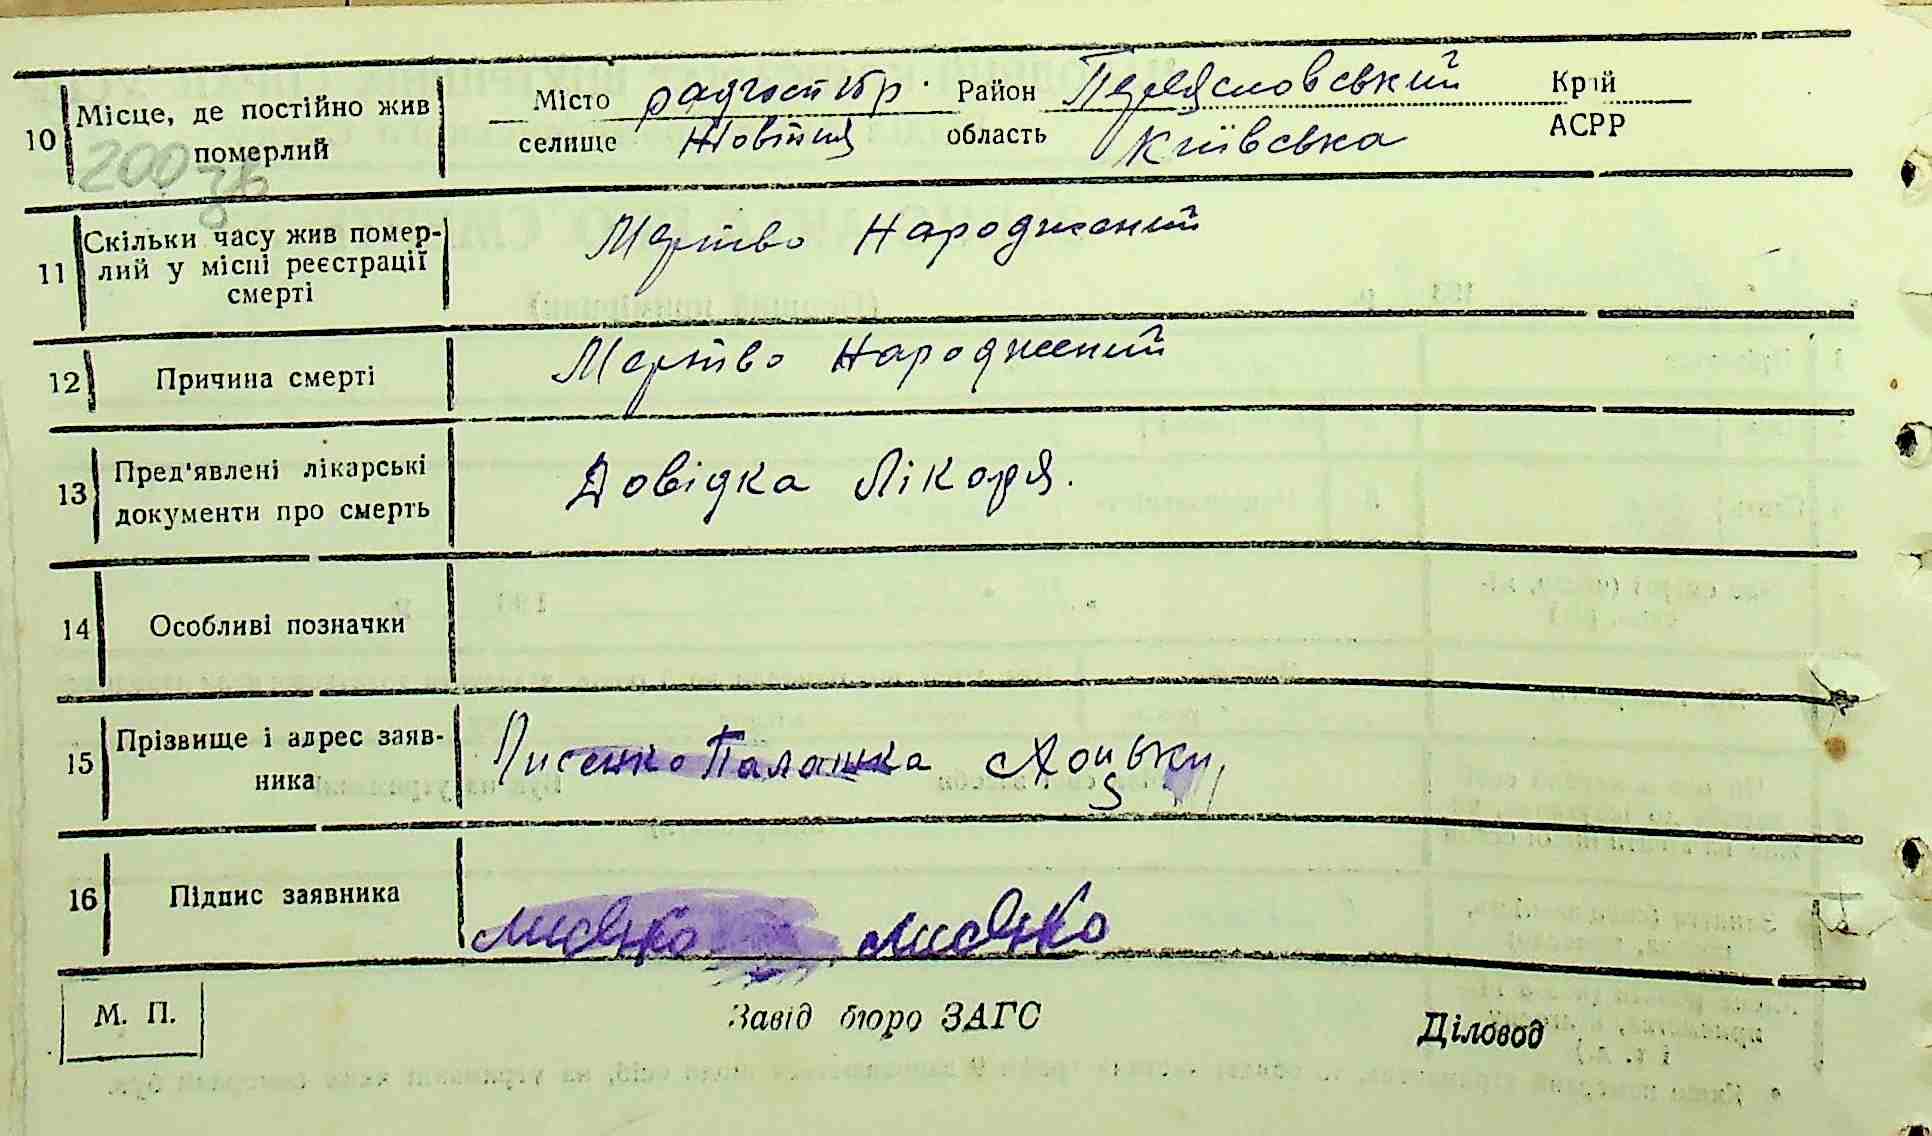 10 Місце, де постійно жив померлий
Місто радгосп Район Переясловський Край
селище Жовтня область Київська АСРР
200
11 Скільки часу жив помер-
лий у місці реєстрації
смерті
Мертво Народжений
12 Причина смерті Мертво Народжений
13 Пред'явлені лікарські
документи про смерть
Довідка Лікаря.
14 Особливі позначки
15 Прізвище і адрес заяв-
ника
Лисенко Палашка Хоцьки
16 Підпис заявника
Лисенко Лисенко
М. П. Завід бюро ЗАГС Діловод